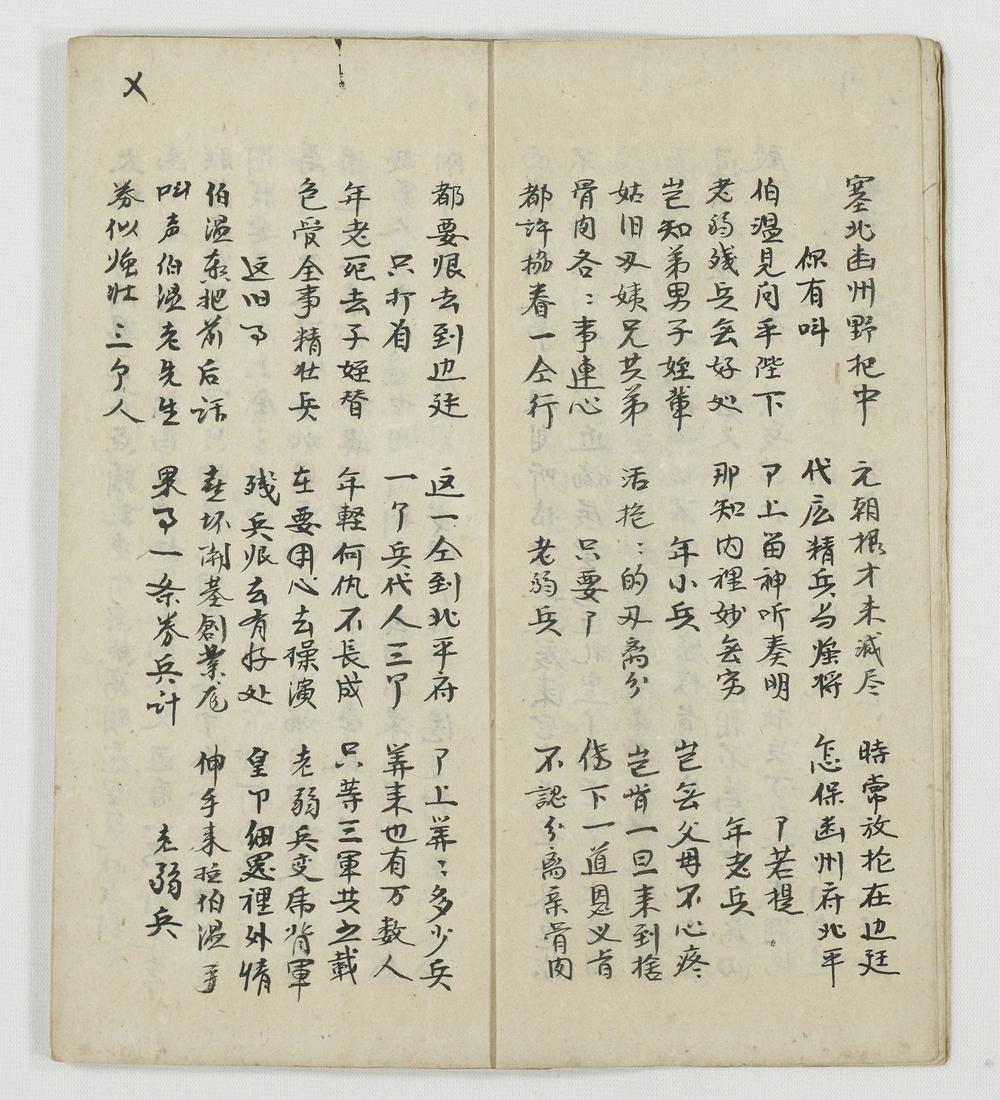 塞北幽州野地中 元朝根才未滅尽 時常放抢在边廷
你有呌 代広精兵与猛将 怎保幽州府北平
伯温見问平陛下 卩上畄神听奏明 卩若提
老弱残兵無好处 那知内裡妙無穷 年老兵
岂知弟男子姪輩 年小兵 岂無父母不心疼
姑旧刄姨兄共弟 活抢〻的刄离分 岂肯一旦来到捨
骨肉各〻事連心 只要卩 传下一道恩义旨
都許協眷一仝行 老弱兵 不認分离亲骨肉
都要恨去到边廷 这一仝到北平府 卩上筭〻多少兵
只打着 一个兵代人三卩 筭来也有万数人
年老死去子姪替 年軽何仇不長成 只等三軍共之載
色受全事精壮兵 在要用心去操演 老弱兵变為背軍
这旧了 残兵恨去有好处 皇卩細思裡外情
伯温奏把前后話 喜坏開基創業尨 伸手来拉伯温手
呌声伯温老先生 果了一条券兵計 老弱兵
券似強壮三个人